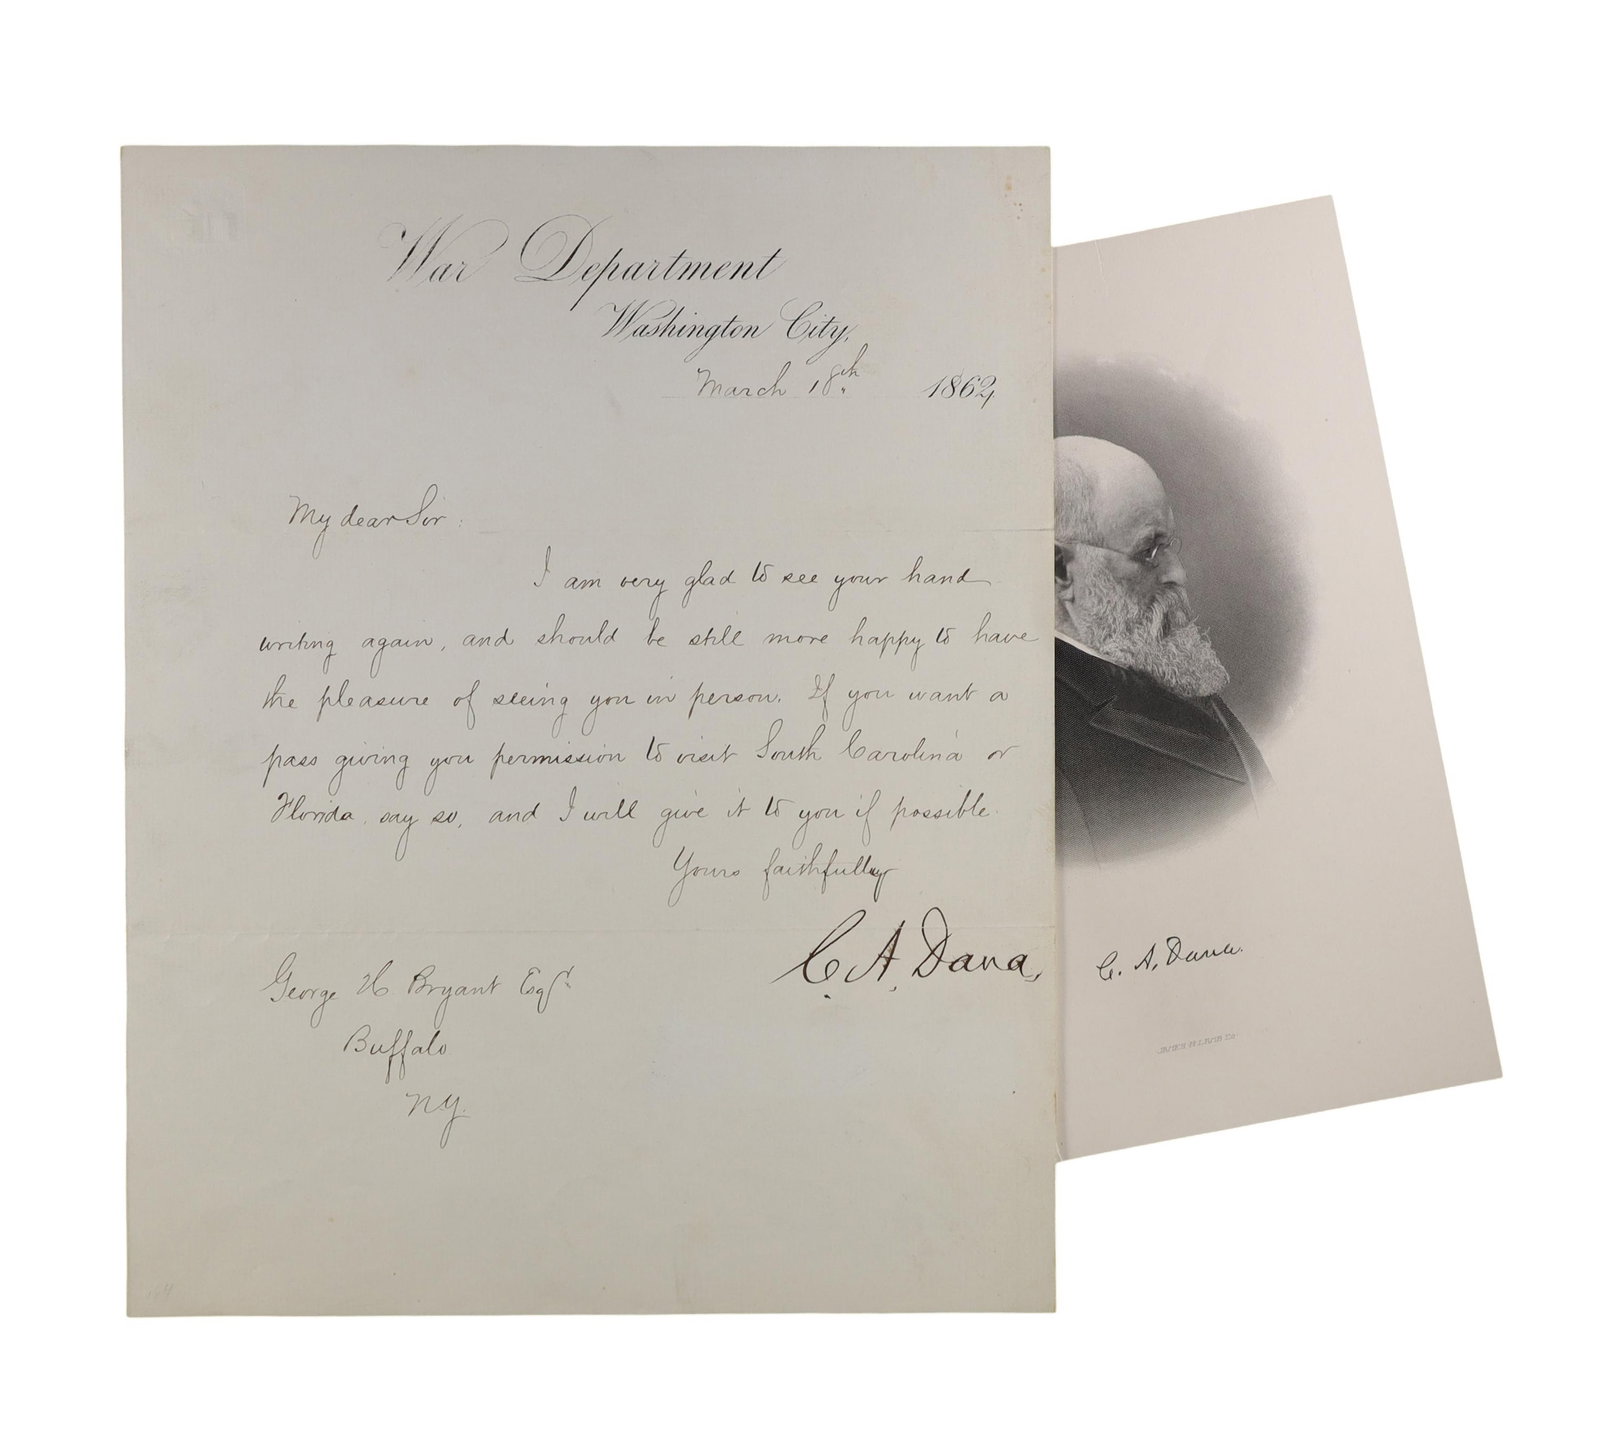 War Department
Washington City,
March 18th 1864
My dear Sir:
I am very glad to see your hand
writing again, and should be still more happy to have
the pleasure of seeing you in person. If you want a
pass giving you permission to visit South Carolina or
Florida, say so, and I will give it to you if possible.
Yours faithfully
C. A. Dana,
George H. Bryant Esqr.
Buffalo
NY.
C. A. Dana.